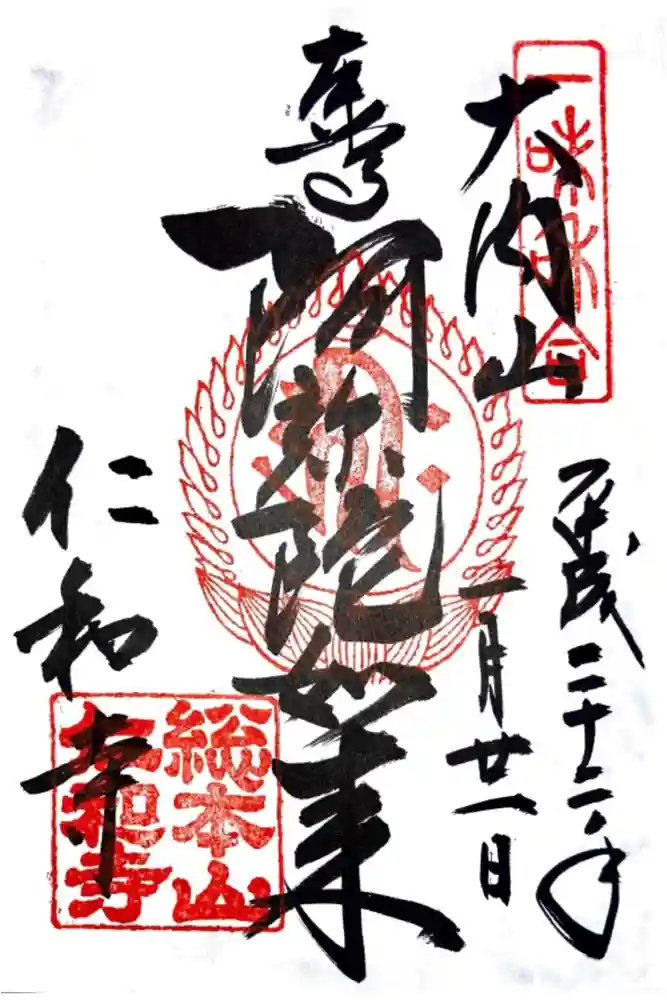 一味和合
大内山
平成二十二年
一月廿一日
本尊
阿弥陀如来
仁和寺
総本山
仁和寺